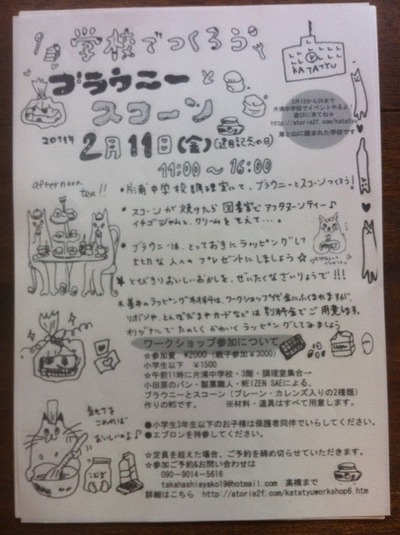 学校でつくろう
KATATYU
ブラウニーと
スコーン
2月12から20まで
片浦中学校でイベントやるよ!
遊びに来てね☆
http://atorie2f.com/katatyu
海と山に囲まれた学校です
2011年
2月11日(金)(建国記念の日)
11:00～16:00
afternoon
tea!!
・片浦中学校調理室にて、ブラウニーとスコーンつくろう!
・スコーンが焼けたら図書室でアフタヌーンティー♪
イチゴジャムと、クリームをそえて…。
・ブラウニーは、とっておきにラッピングして
大切な人へのプレゼントにしましょう☆
☆とびきりおいしいおかしを、ぜいたくなざいりょうで!!!
☆基本のラッピング材料は、ワークショップ代金にふくまれますが、
リボンやとんぼだまやカードなどは別料金でご用意します。
オリジナルでたのしくかわいくラッピングしてみましょう
ワークショップ参加について
☆参加費 ¥2000(親子参加¥3000)
小学生以下 ¥1500
☆午前11時に片浦中学校・3階・調理室集合→
小田原のパン・製菓職人・WEIZEN SAEによる、
ブラウニーとスコーン(プレーン・カレンズ入りの2種類)
作りのWSです。 ※材料・道具はすべて用意します。
気をてを
これめれば
おいしいのよ♪
●小学生3年生以下のお子様は保護者同伴でいらしてください。
●エプロンを持参してください。
☆定員を超えた場合、ご予約を締め切らせていただきます。
☆参加ご予約&お問い合わせは
090-9014-5616
takahashiayako19@hotmail.com 高橋まで
詳細はこちら http://atorie2f.com/katatyuworkshop6.htm